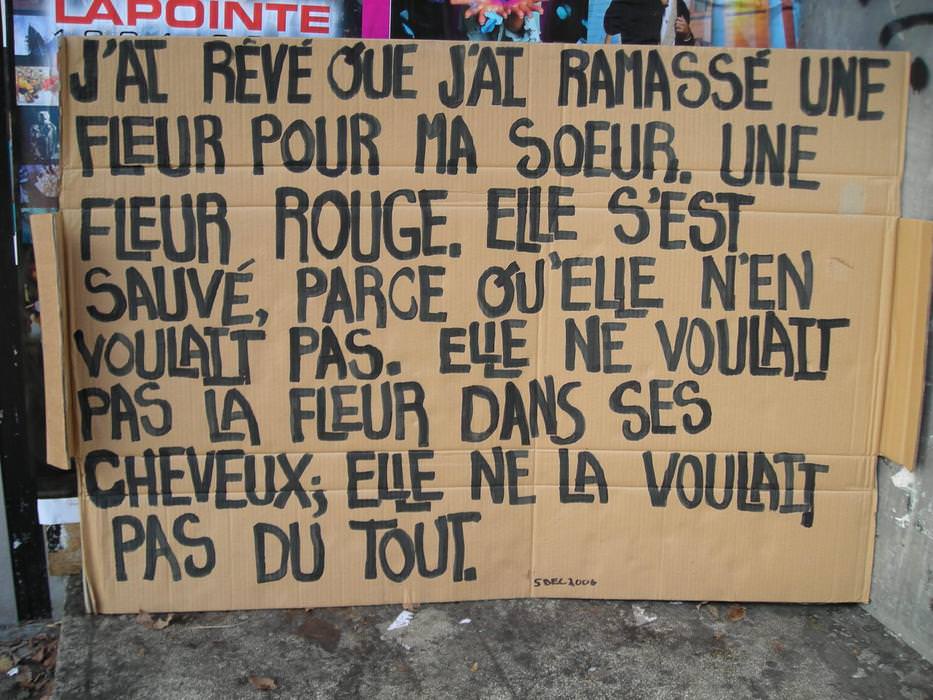 LAPOINTE
J'AI RÊVÉ QUE J'AI RAMASSÉ UNE
FLEUR POUR MA SOEUR. UNE
FLEUR ROUGE. ELLE S'EST
SAUVÉ, PARCE QU'ELLE N'EN
VOULAIT PAS. ELLE NE VOULAIT
PAS LA FLEUR DANS SES
CHEVEUX; ELLE NE LA VOULAIT
PAS DU TOUT.
5 DEC 2006